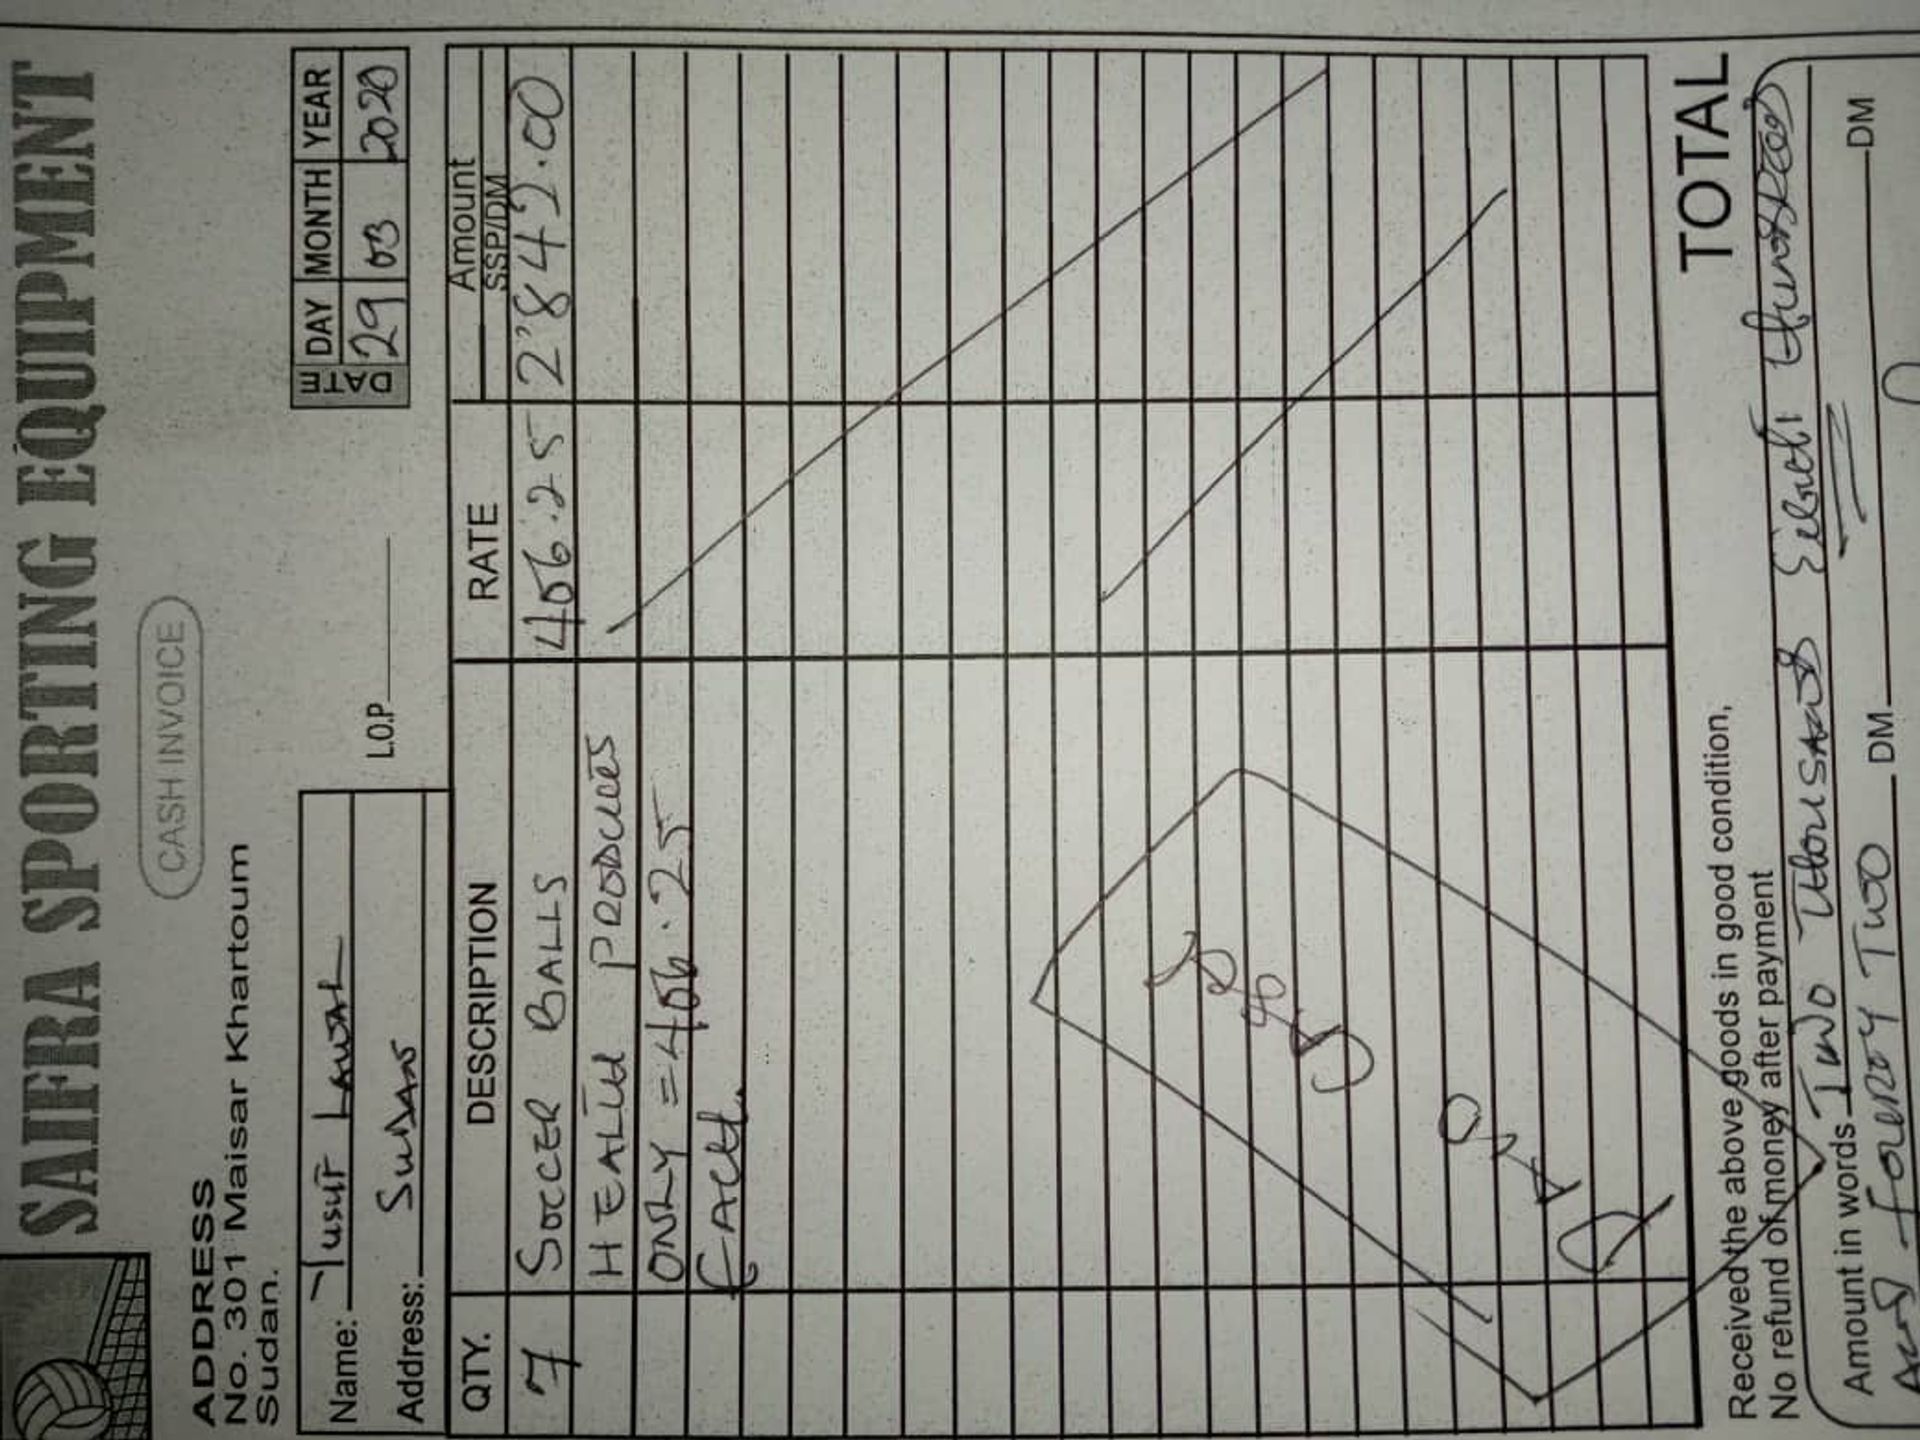 SAIFRA SPORTING EQUIPMENT
CASH INVOICE
ADDRESS
No. 301 Maisar Khartoum
Sudan.
DATE DAY MONTH YEAR
29 03 2020
Name: Yusuf Lawal
Address: Sudan
L.O.P
QTY. DESCRIPTION RATE Amount
SSP/DM
7 SOCCER BALLS 406.25 2'842.00
HEALTH PRODUCTS
ONLY = 406.25
EACH.
TOTAL
Received the above goods in good condition,
No refund of money after payment
Amount in words Two Thousand Eight Hundred
And Fourty Two DM DM